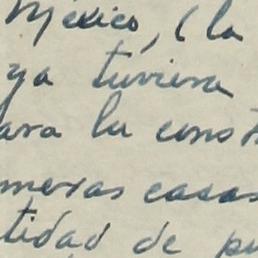 México, (la
ya tuviera
ara la const
meras casas
tidad de pu